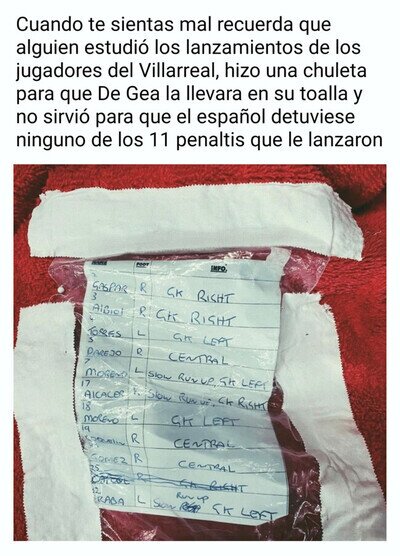 Cuando te sientas mal recuerda que
alguien estudió los lanzamientos de los
jugadores del Villarreal, hizo una chuleta
para que De Gea la llevara en su toalla y
no sirvió para que el español detuviese
ninguno de los 11 penaltis que le lanzaron
NAME FOOT INFO.
2
GASPAR R GK RIGHT
3
ALBIOL R GK RIGHT
4
TORRES L GK LEFT
5
PAREJO R CENTRAL
7
MORENO L SLOW RUN UP, GK LEFT
17
ALCACER SLOW RUN UP, GK RIGHT
18
MORENO L GK LEFT
19
R CENTRAL
GOMEZ R CENTRAL
25
R GK RIGHT
RUN UP
RABA L SLOW GK LEFT